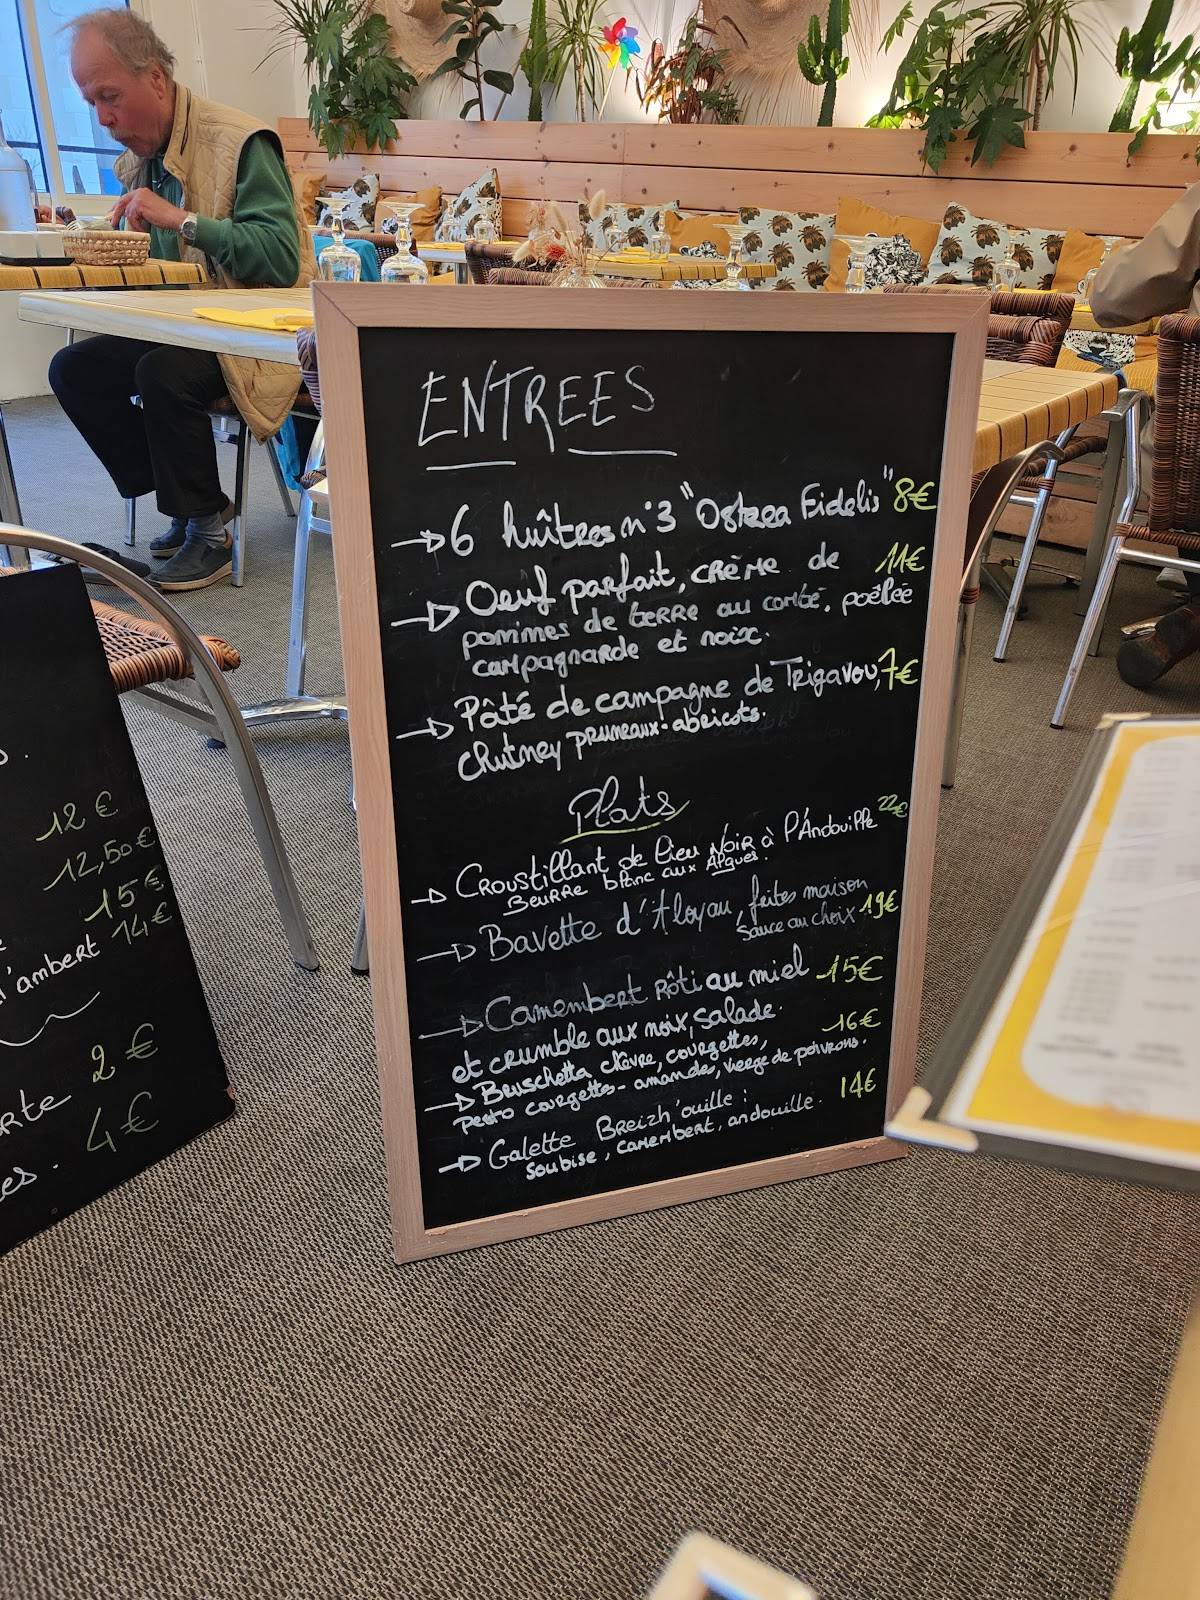 ENTREES
→ 6 huîtres n°3 "Ostrea Fidelis" 8€
→ Oeuf parfait, crème de 11€
pommes de terre au comté, poêlée
campagnarde et noix.
→ Pâté de campagne de Trigavou, 7€
chutney pruneaux-abricots.
Plats
→ Croustillant de lieu Noir à l'Andouille 22€
Beurre blanc aux Algues.
→ Bavette d'Aloyau, frites maison
sauce au choix 19€
→ Camembert rôti au miel 15€
et crumble aux noix, salade.
→ Bruschetta chèvre, courgettes, 16€
pesto courgettes-amandes, vierge de poivrons.
→ Galette Breizh'ouille : 14€
soubise, camembert, andouille.
12€
12,50€
15€
14€
l'ambert
2€
4€